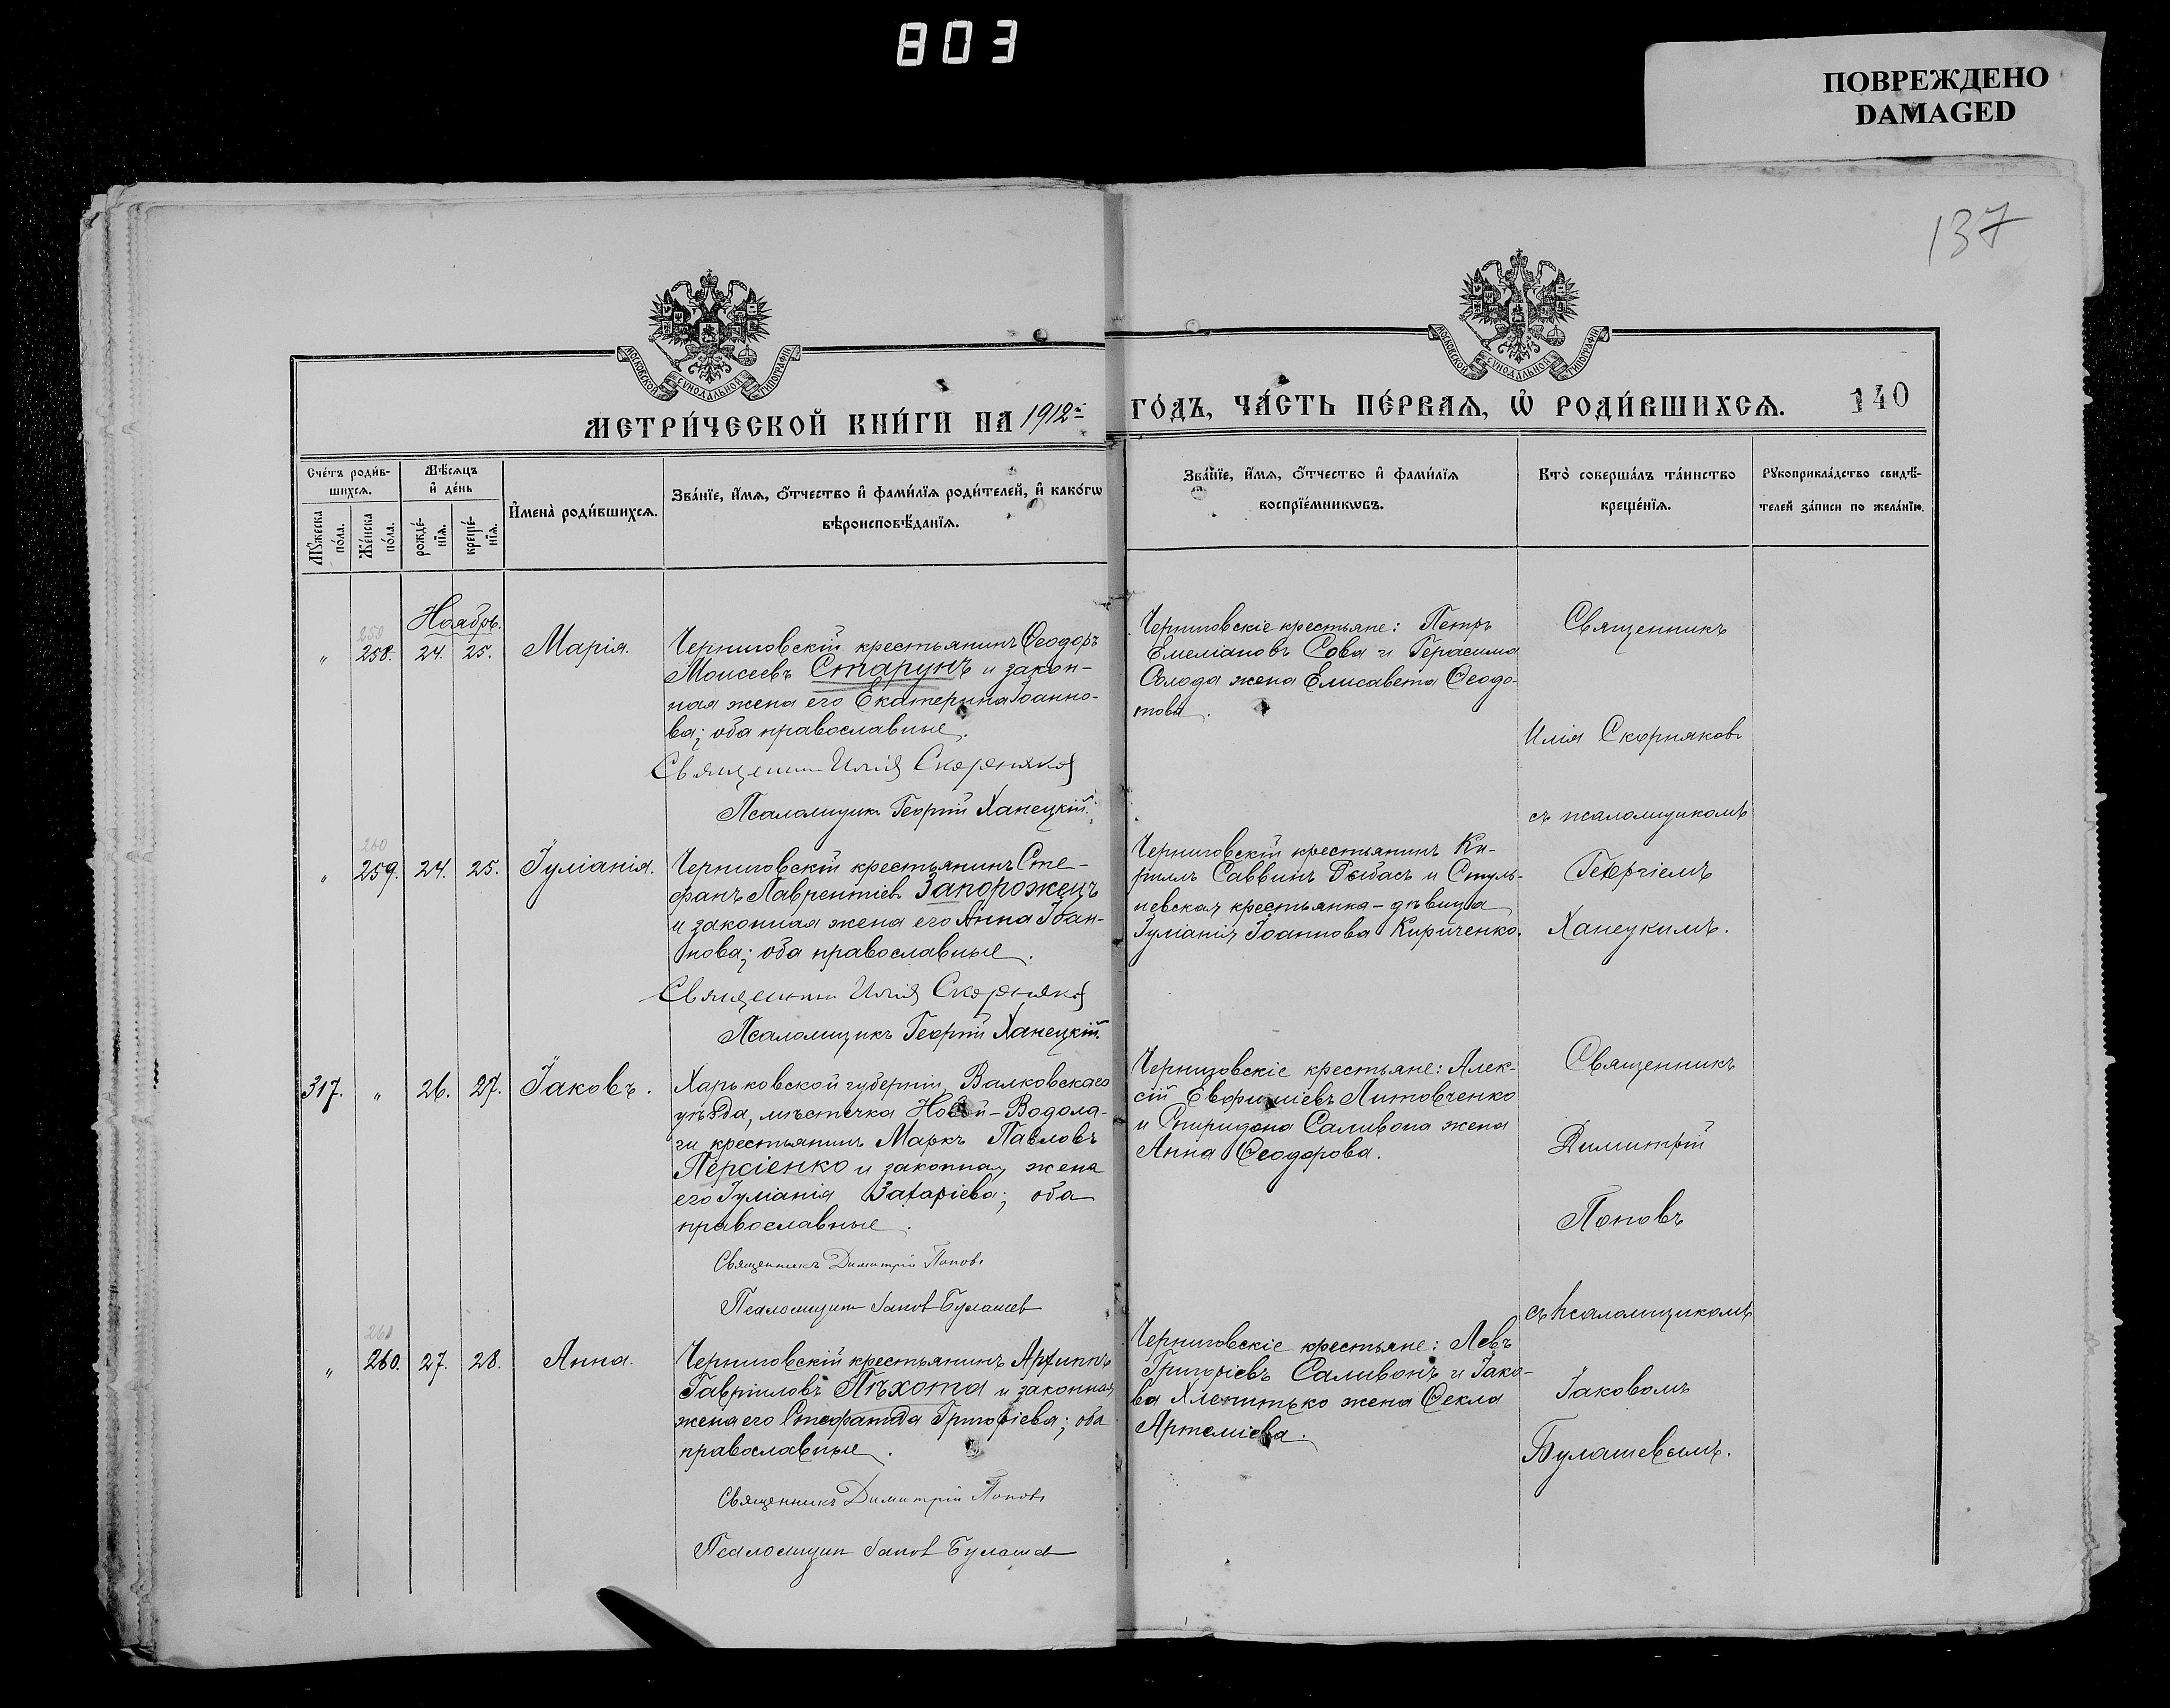 803
ПОВРЕЖДЕНО
DAMAGED
137
МОСКОВСКОЙ СУНОДАЛЬНОЙ ТИПОГРАФІИ
МОСКОВСКОЙ СУНОДАЛЬНОЙ ТИПОГРАФІИ
МЕТРИ́ЧЕСКОЙ КНИ́ГИ НА 1912-й
ГО́ДЪ, ЧА́СТЬ ПЕ́РВАѦ, Ѡ҆ РОДИ́ВШИХСѦ.
140
Сче́тъ роди́в-
шихсѧ.
Мѣ́сѧцъ
и҆ де́нь
И҆мена̀ роди́вшихсѧ.
Зва́нїе, и҆́мѧ, ѻ҆́тчество и҆ фами́лїѧ роди́телей, и҆ како́гѡ
вѣроисповѣ́данїѧ.
Мꙋ́жеска
по́ла.
Же́нска
по́ла.
рожде́-
нїѧ.
креще́-
нїѧ.
Зва́нїе, и҆́мѧ, ѻ҆́тчество и҆ фами́лїѧ
воспрїе́мникѡвъ.
Кто̀ соверша́лъ та́инство
креще́нїѧ.
Рꙋкоприкла́дство свидѣ́-
телей за́писи по жела́нїю.
Ноябрь.
259
" 258. 24. 25. Марія.
Черниговскій крестьянинъ Ѳеодоръ
Моисеевъ Старунъ и закон-
ная жена его Екатерина Іоанно-
ва; оба православные.
Священник Илія Скорняков
Псаломщик Георгій Ханецкій.
Черниговскіе крестьяне: Петръ
Емеліановъ Сова и Герасима
Солода жена Елисавета Ѳеодо-
това.
Священникъ
Илія Скорняковъ
съ псаломщикомъ
Георгіемъ
Ханецкимъ.
260
" 259. 24. 25. Іуліанія.
Черниговскій крестьянинъ Сте-
фанъ Лаврентіевъ Запорожецъ
и законная жена его Анна Іоан-
нова; оба православные.
Священник Илія Скорняков
Псаломщикъ Георгій Ханецкій.
Черниговскій крестьянинъ Ки-
риллъ Саввинъ Рыбасъ и Стуль-
невская крестьянка-дѣвица
Іуліанія Іоаннова Кириченко.
317. " 26. 27. Іаковъ.
Харьковской губерніи, Валковскаго
уѣзда, мѣстечка Новой-Водола-
ги крестьянинъ Маркъ Павловъ
Персіенко и законная жена
его Іуліанія Захаріева; оба
православные.
Священникъ Димитрій Поповъ
Псаломщик Іаков Булашев
Черниговскіе крестьяне: Алек-
сій Евфиміевъ Литовченко
и Спиридона Саливона жена
Анна Ѳеодорова.
Священникъ
Димитрій
Поповъ
съ псаломщикомъ
Іаковомъ
Булашевымъ.
261
" 260. 27. 28. Анна.
Черниговскій крестьянинъ Архиппъ
Гавріиловъ Пѣхота и законная
жена его Стефанида Григоріева; оба
православные.
Священникъ Димитрій Поповъ
Псаломщик Іаков Булашев
Черниговскіе крестьяне: Левъ
Григоріевъ Саливонъ и Іако-
ва Хлепитько жена Ѳекла
Артеміева.